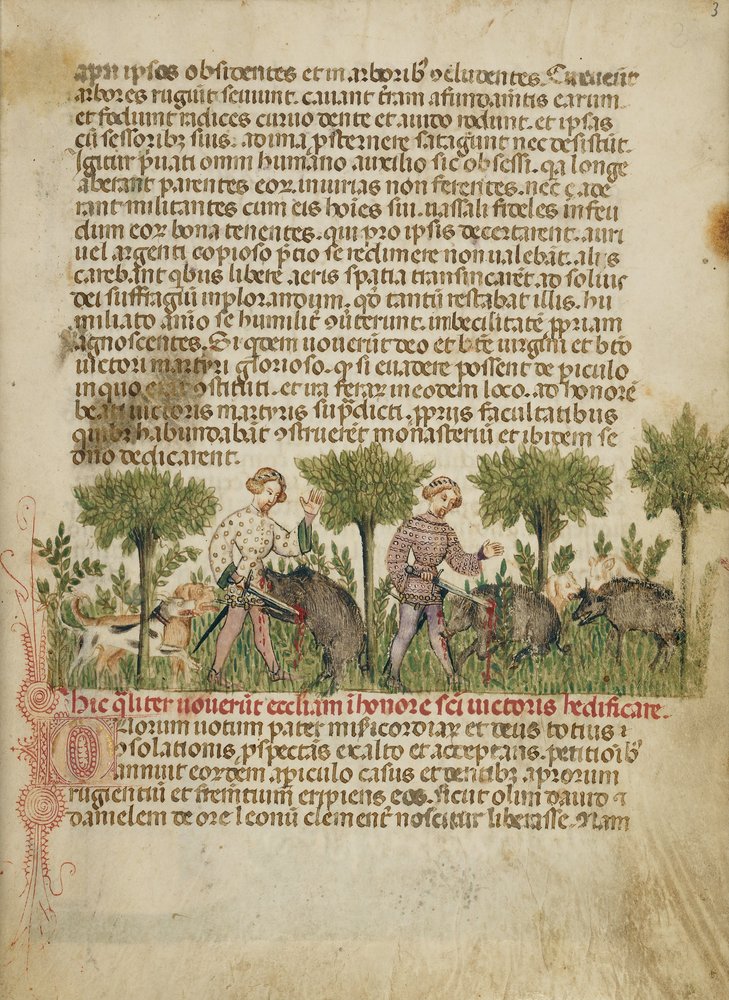 3
apri ipsos obsidentes et in arborib; ꝯcludentes. Circueūt
arbores rugiūt seuiunt. cauant t̄ram a fundam̄tis earum
et fodiunt radices curuo dente et auido rodunt. et ipsas
cū sessoribꝫ suis. ad ima ꝓsternere satagunt nec desistūt.
Igitur p̄uati omni humano auxilio sic obsessi. qa longe
aberant parentes eoꝝ iniurias non ferentes. nec ade
rant militantes cum eis hoīes sui. uassali fideles in feu
dum eoꝝ bona tenentes. qui pro ipsis decertarent. auri
uel argenti copioso p̄cio se redimere non ualebāt. alis
carebant qbus libere aeris spatia transmearēt. ad solius
dei suffragiū inplorandum. qd̄ tantū restabat illis. hu
miliato aīo se humilit̄ ꝯuerterunt. imbecilitatē ꝓpriam
agnoscentes. Si qdem uouerūt deo et bt̄e uirgini et bt̄o
uictori martyri glorioso. qꝫ si euadere possent de piculo
in quo erāt ꝯstituti. et ira feraꝝ in eodem loco. ad honorē
beati uictoris martyris sup̄dicti. ꝓprijs facultatibus
quibꝫ habundabāt ꝯstruerēt monasteriū et ibidem se
dn̄o dedicarent.
hic qͣliter uouerūt eccliam ī honore sc̄i uictoris hedificare.
Quorum uotum pater misīcordiaꝝ et deus totius
ꝯsolationis ꝓspectās ex alto et acceptans. petitioīb;
annuit eorūdem a piculo casus et dentibꝫ aprorum
rugientiū et frem̄tium eripiens eos. sicut olim dauid ⁊
danielem de ore leonū clement̄ noscitur liberasse. Nam